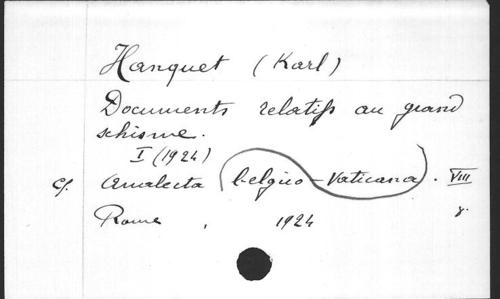 Hanquet (Karl)
Documents relatifs au grand
schisme.
I (1924)
cf. Analecta (belgico-Vaticana). VIII
Rome, 1924